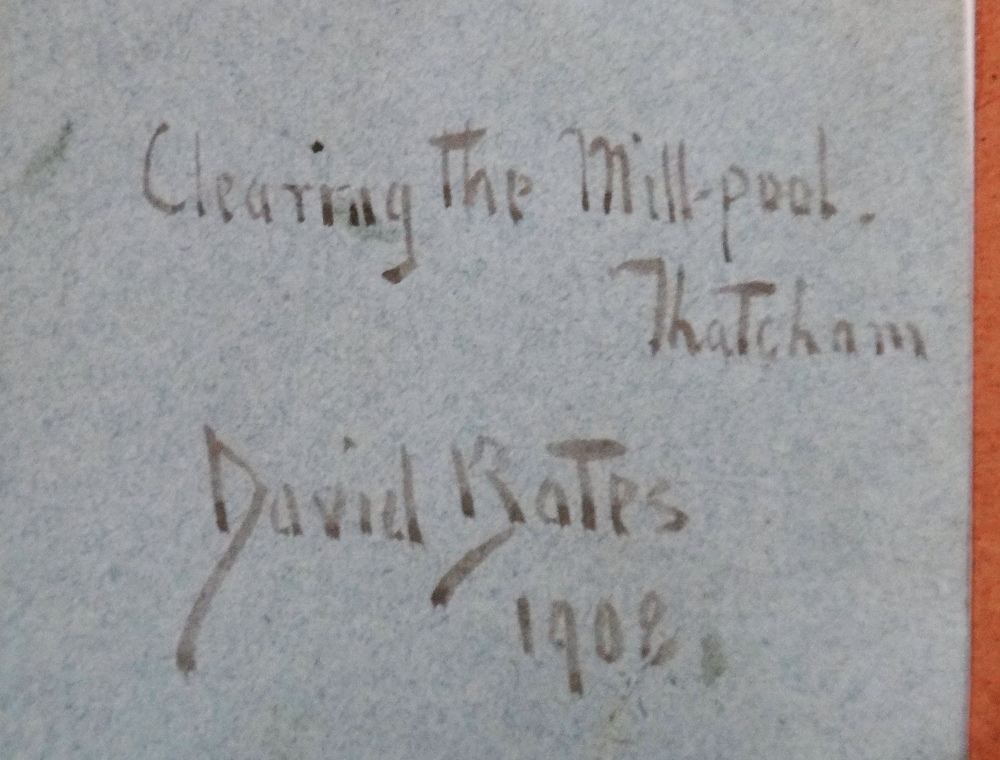 Clearing The Mill-pool.
Thatcham
David Bates
1908.